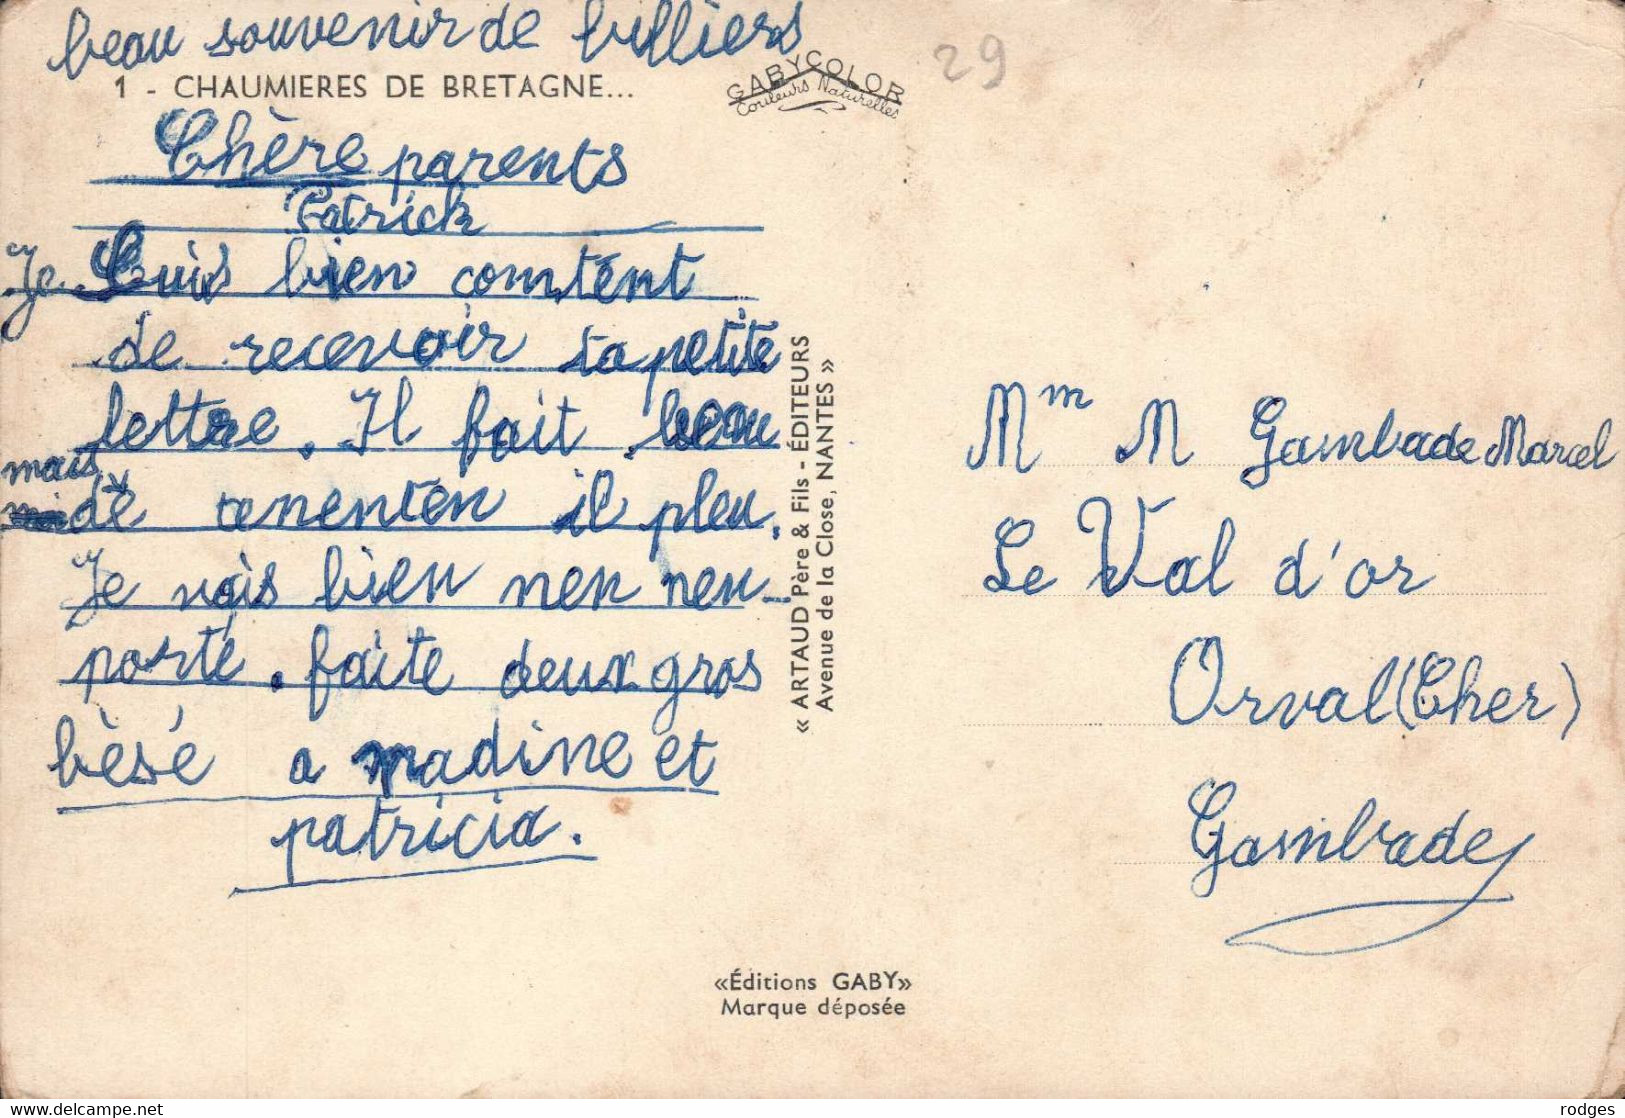 beau souvenir de billiers
1 - CHAUMIERES DE BRETAGNE...
GABYCOLOR
Couleurs Naturelles
29
Chère parents
Patrick
Je suis bien comtent
de recevoir ta petite
lettre. Il fait beau
mais
de tenenten il pleu.
Je vais bien nen nen
porté. faite deux gros
bèsé a nadine et
patricia.
« ARTAUD Père & Fils - ÉDITEURS
Avenue de la Close, NANTES »
Mm M Gambade Marcel
Le Val d'or
Orval (Cher)
Gambade
«Éditions GABY»
Marque déposée
rodges